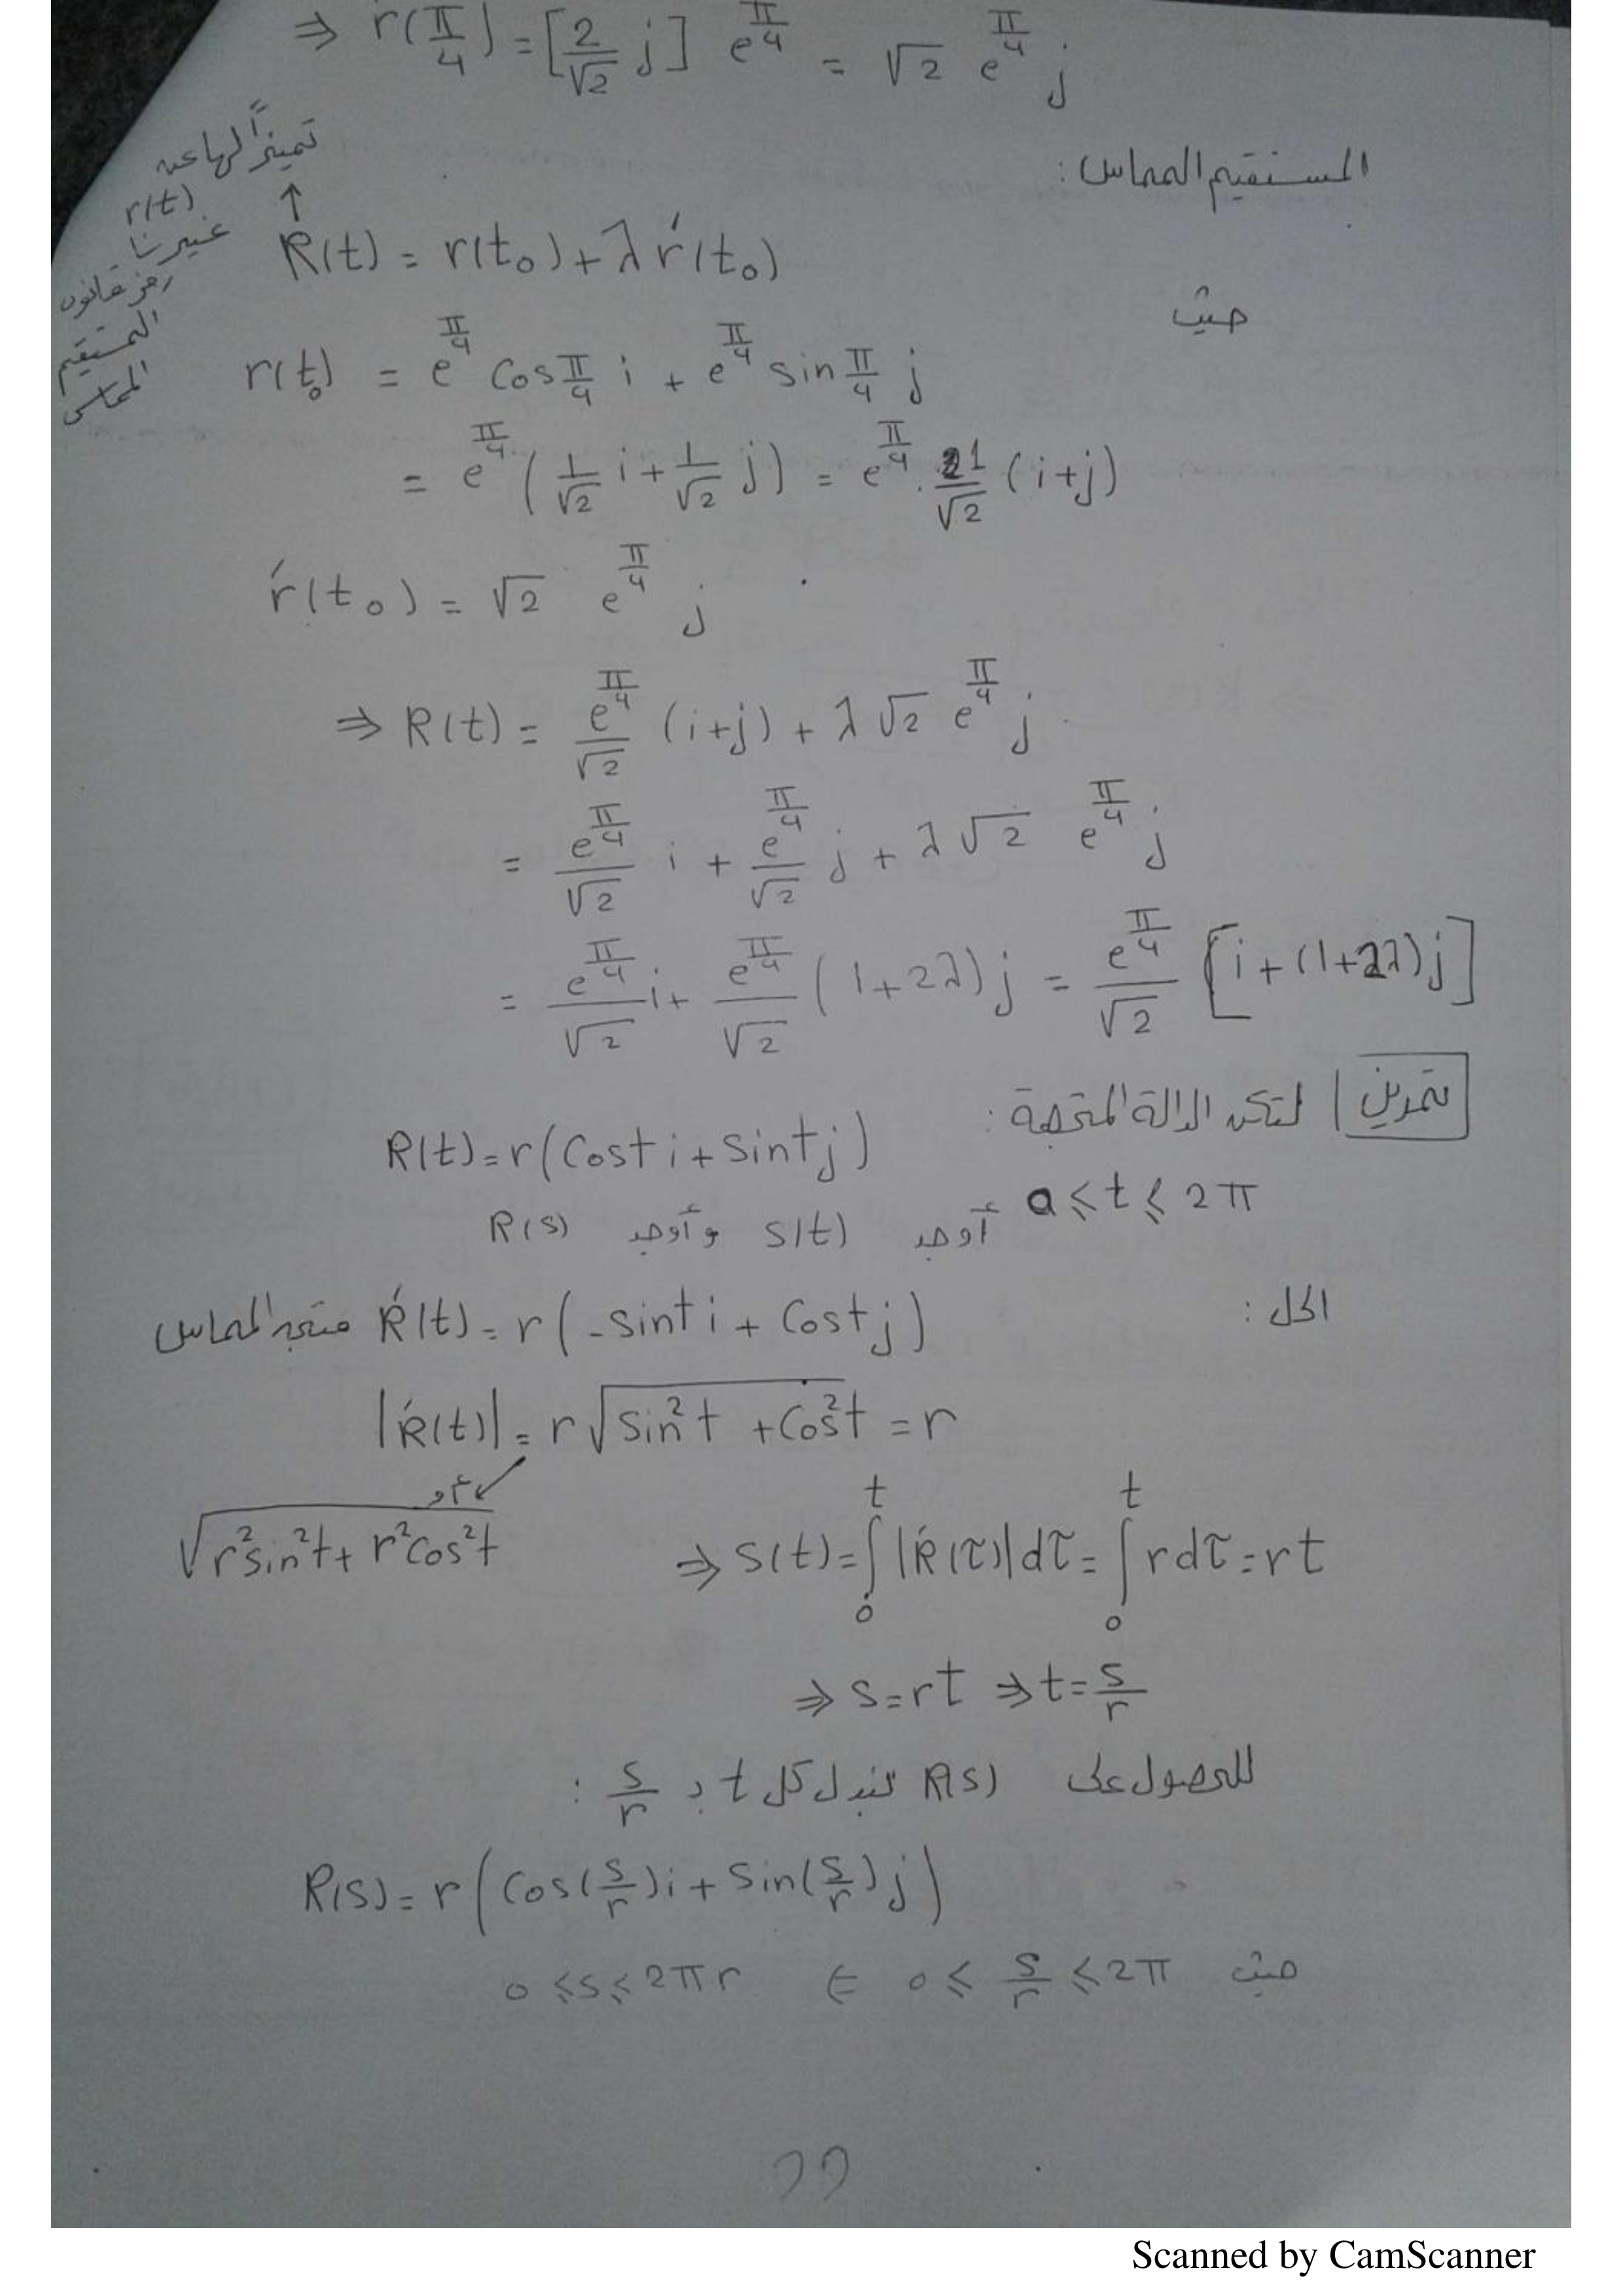 ⇒ ŕ(π/4) = [2/√2 j] e^(π/4) = √2 e^(π/4) j
المستقيم المماس:
R(t) = r(t₀) + λ ŕ(t₀)
↑
تميزاً لها عن
r(t)
غيرنا
رمز قانون
المستقيم
المماس
حيث
r(t₀) = e^(π/4) cos π/4 i + e^(π/4) sin π/4 j
= e^(π/4) (1/√2 i + 1/√2 j) = e^(π/4) . 1/√2 (i+j)
ŕ(t₀) = √2 e^(π/4) j
⇒ R(t) = e^(π/4)/√2 (i+j) + λ √2 e^(π/4) j
= e^(π/4)/√2 i + e^(π/4)/√2 j + λ √2 e^(π/4) j
= e^(π/4)/√2 i + e^(π/4)/√2 (1+2λ) j = e^(π/4)/√2 [i + (1+2λ) j]
تمرين | لتكن الدالة المتجهة:
R(t) = r(Cost i + Sint j)
0 ⩽ t ⩽ 2π
أوجد S(t) وأوجد R(s)
الحل:
Ŕ(t) = r(-sint i + Cost j) متجه المماس
|Ŕ(t)| = r√(sin²t + Cos²t) = r
أو
√(r²sin²t + r²cos²t)
⇒ S(t) = ∫₀ᵗ |Ŕ(τ)| dτ = ∫₀ᵗ r dτ = rt
⇒ S = rt ⇒ t = s/r
للحصول على R(s) نبدل كل t بـ s/r :
R(s) = r(Cos(s/r) i + Sin(s/r) j)
حيث 0 ⩽ s/r ⩽ 2π ⇐ 0 ⩽ s ⩽ 2πr
٢٢
Scanned by CamScanner